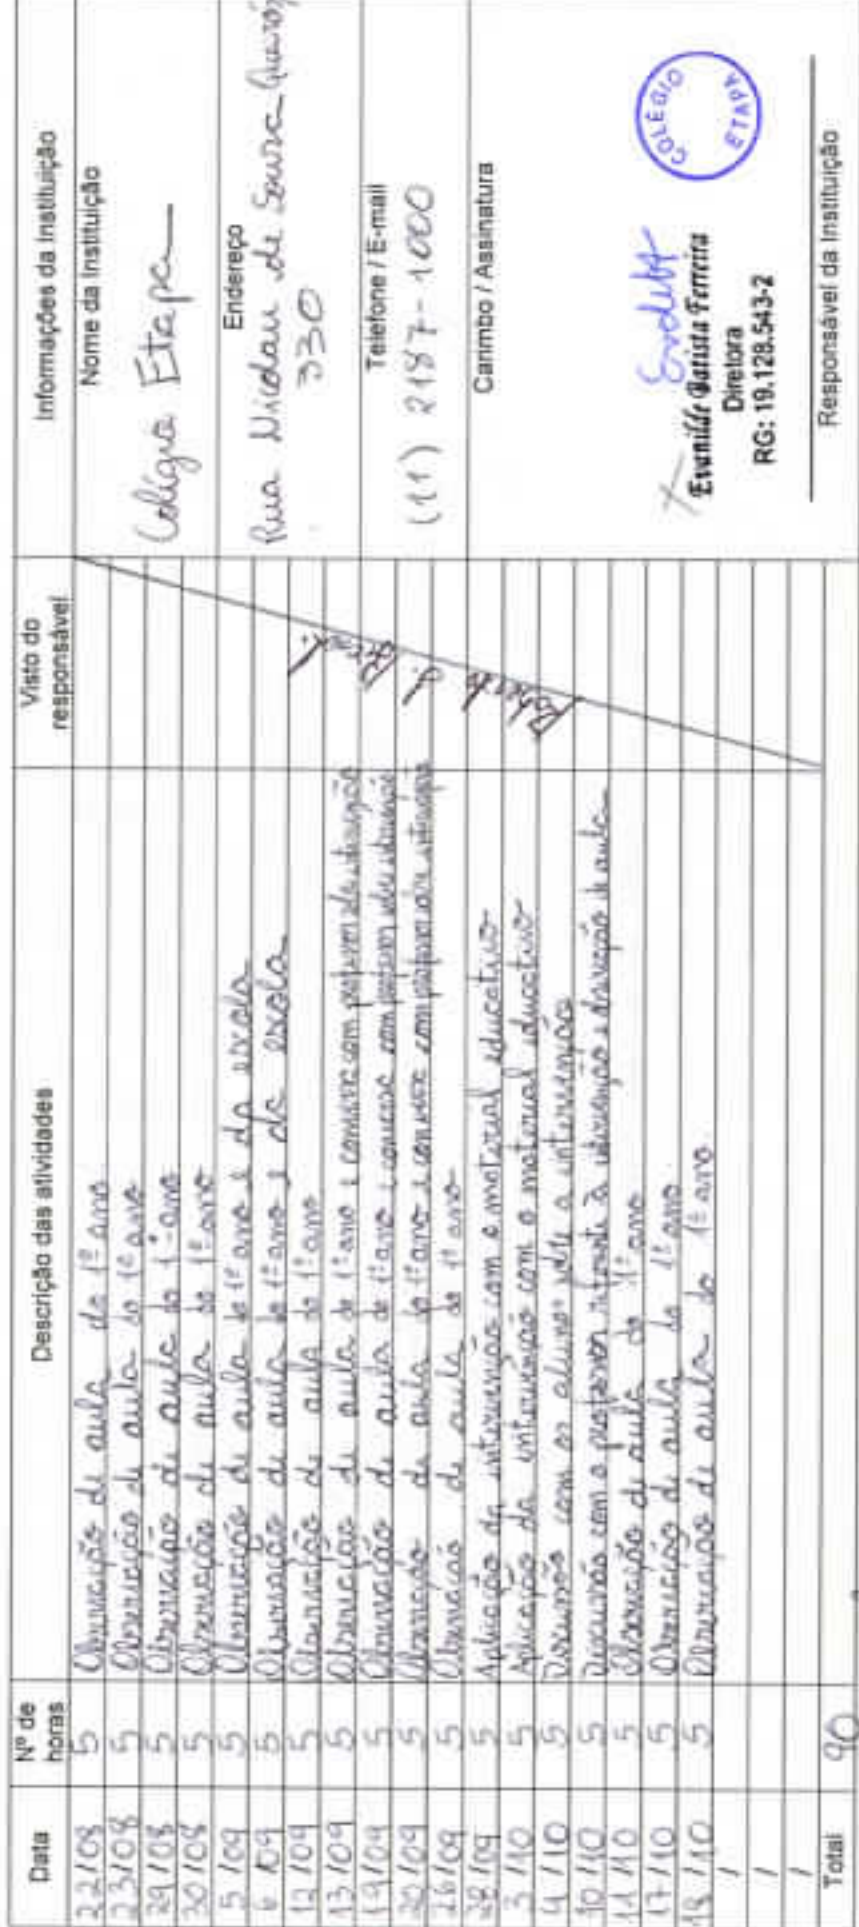 Data Nº de horas Descrição das atividades Visto do responsável Informações da Instituição
22/08 5 Observação de aula do 1º ano
23/08 5 Observação de aula do 1º ano
29/08 5 Observação de aula do 1º ano
30/08 5 Observação de aula do 1º ano
5/09 5 Observação de aula do 1º ano e da escola
6/09 5 Observação de aula do 1º ano e da escola
12/09 5 Observação de aula do 1º ano
13/09 5 Observação de aula do 1º ano e conversa com professor sobre intervenção
19/09 5 Observação de aula do 1º ano e conversa com professor sobre intervenção
20/09 5 Observação de aula do 1º ano e conversa com professor sobre intervenção
26/09 5 Observação de aula do 1º ano
28/09 5 Aplicação da intervenção com o material educativo
3/10 5 Aplicação da intervenção com o material educativo
4/10 5 Discussão com os alunos sobre a intervenção
10/10 5 Discussão com o professor referente à intervenção e observação de aula
11/10 5 Observação de aula do 1º ano
17/10 5 Observação de aula do 1º ano
18/10 5 Observação de aula do 1º ano
/
/
/
Total 90
Roberto J.
Nome da Instituição
Colégio Etapa
Endereço
Rua Nicolau de Sousa Queiroz
330
Telefone / E-mail
(11) 2187-1000
Carimbo / Assinatura
Evanilde Batista Ferreira
Diretora
RG: 19.128.543-2
COLÉGIO
ETAPA
Responsável da Instituição